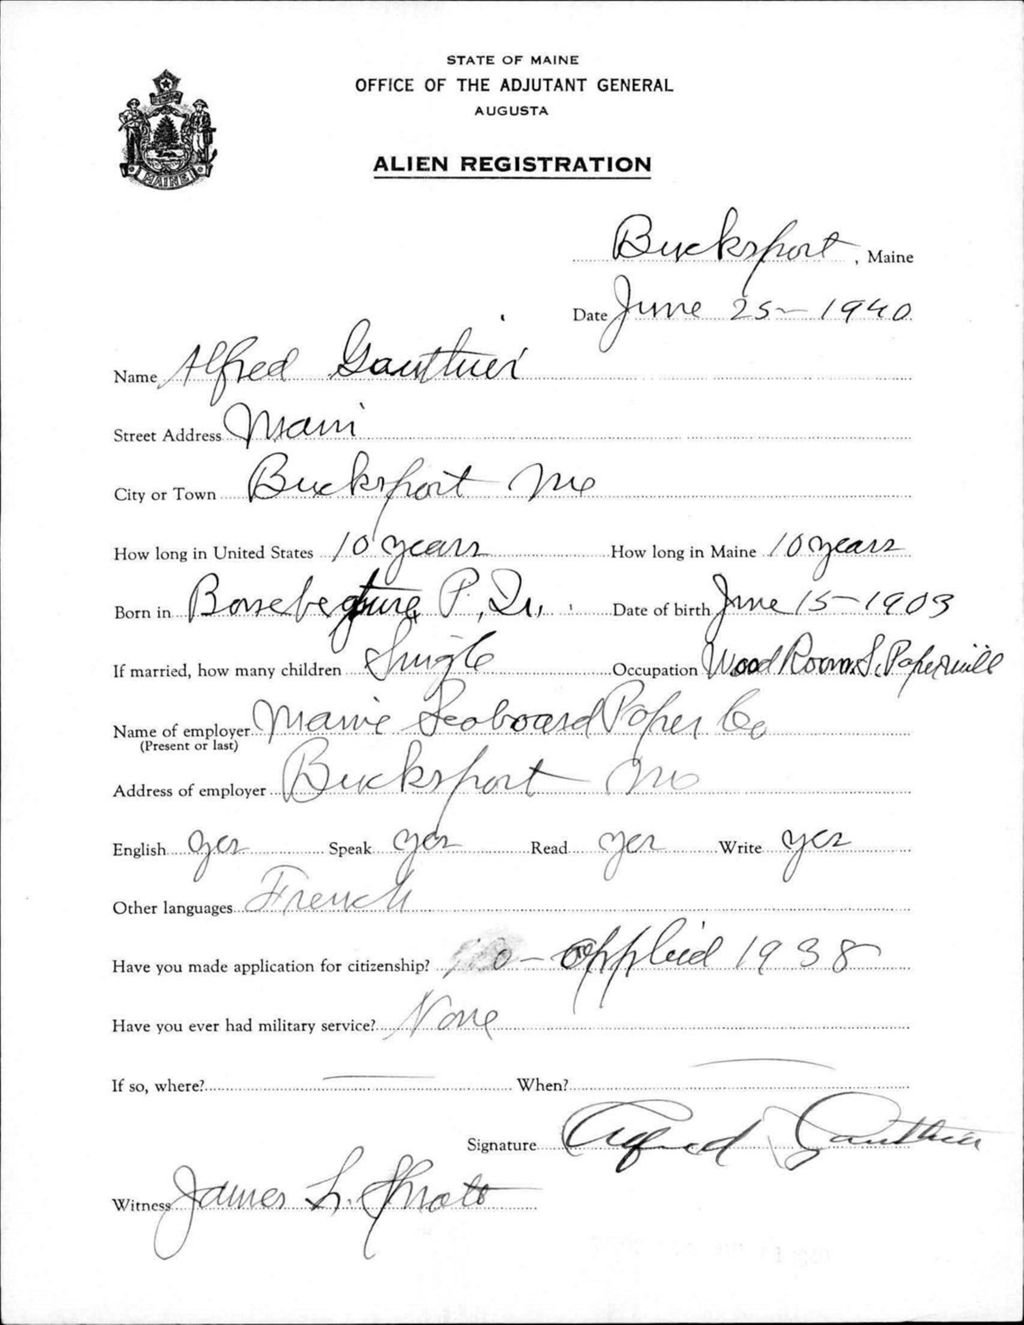 STATE OF MAINE
OFFICE OF THE ADJUTANT GENERAL
AUGUSTA
ALIEN REGISTRATION
MAINE
Bucksport, Maine
Date June 25-1940
Name Alfred Gauthier
Street Address Main
City or Town Bucksport Me
How long in United States 10 years How long in Maine 10 years
Born in P. Qu. Date of birth June 15-1903
If married, how many children Single Occupation Wood Room Papermill
Name of employer Maine Seaboard Paper Co
(Present or last)
Address of employer Bucksport Me
English yes Speak yes Read yes Write yes
Other languages French
Have you made application for citizenship? - applied 1938
Have you ever had military service? None
If so, where? When?
Signature Alfred Gauthier
Witness James L.